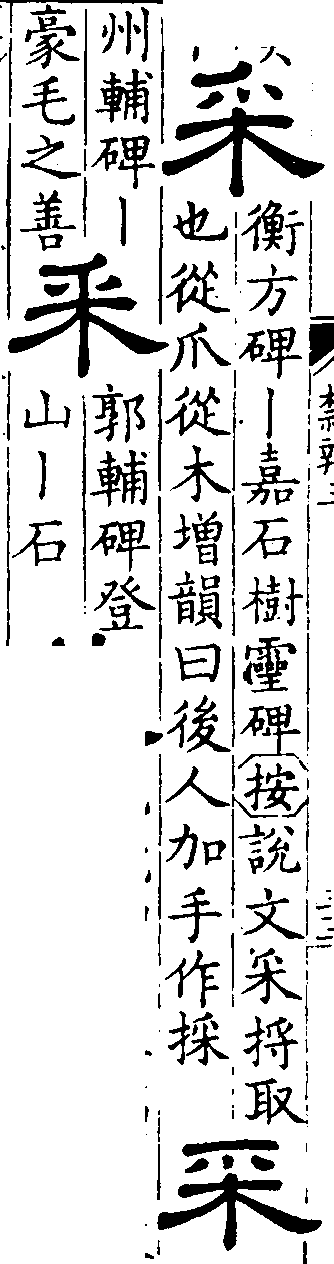 采
衡方碑丨嘉石樹靈碑按說文采捋取
也從爪從木增韻曰後人加手作採
采
州輔碑丨
豪毛之善
采
郭輔碑登
山丨石